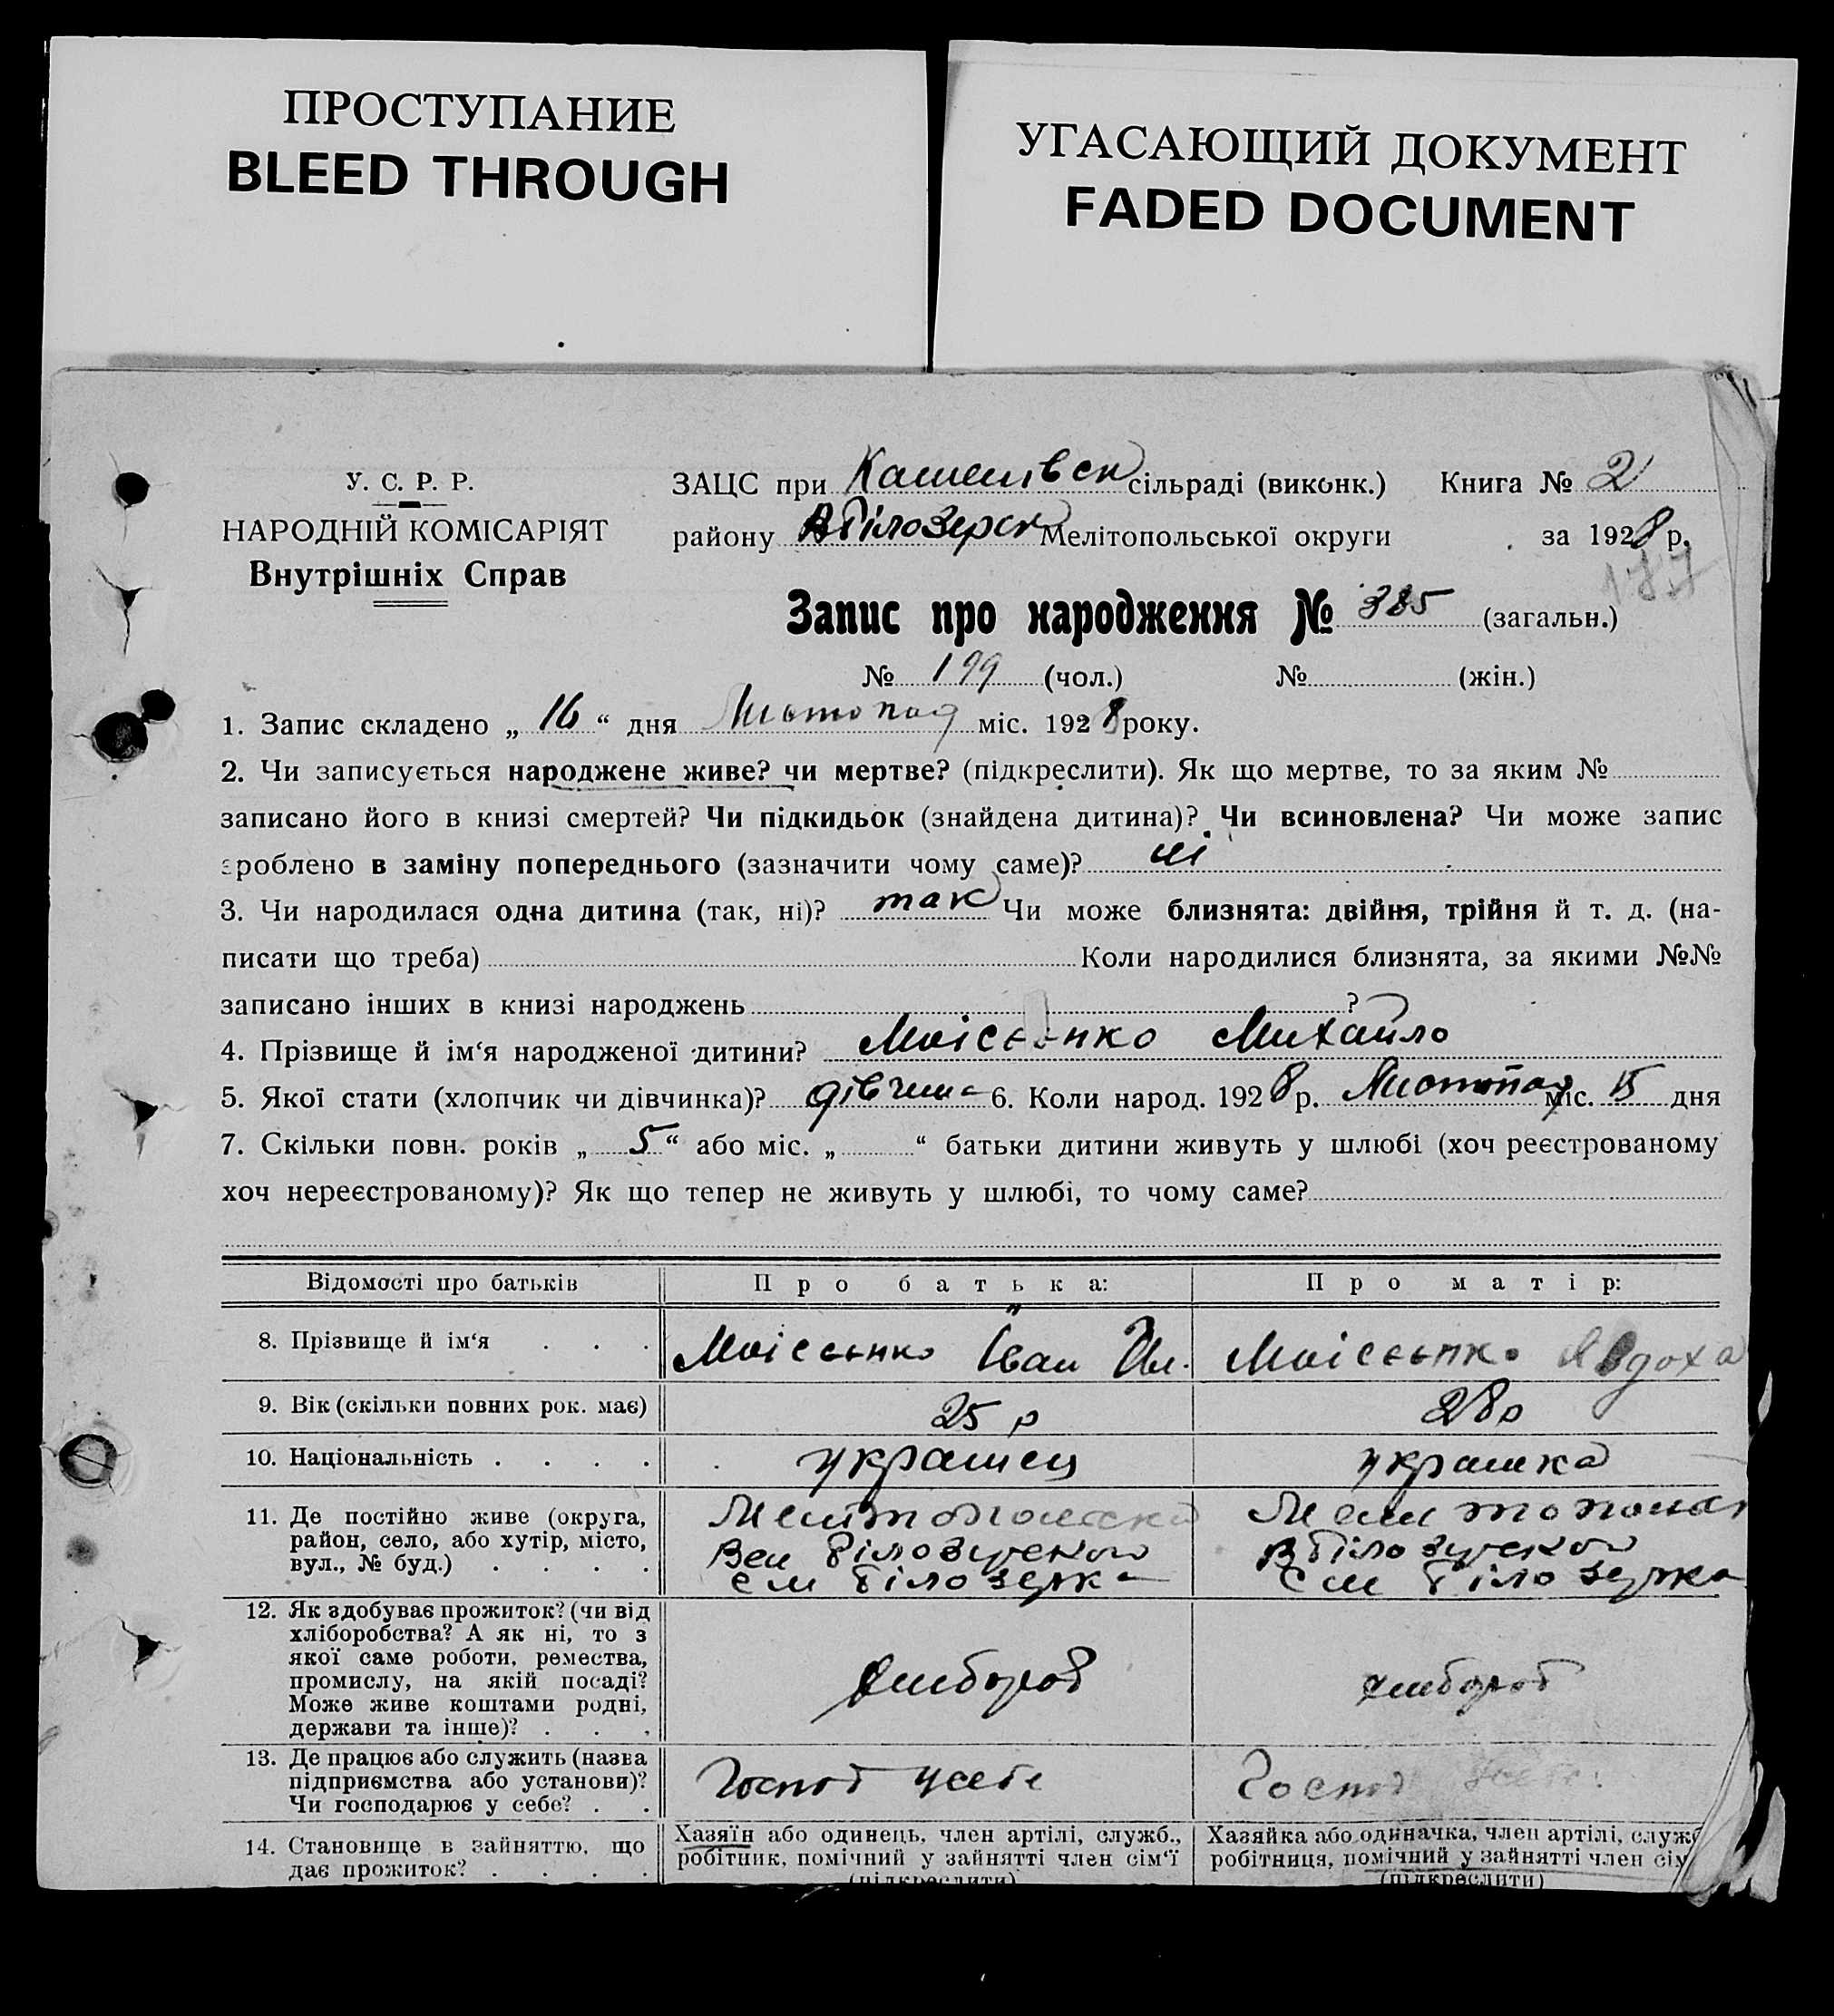 ПРОСТУПАНИЕ
BLEED THROUGH
УГАСАЮЩИЙ ДОКУМЕНТ
FADED DOCUMENT
У. С. Р. Р.
НАРОДНІЙ КОМІСАРІЯТ
Внутрішніх Справ
ЗАЦС при сільраді (виконк.) Книга № 2
району Мелітопольської округи за 1928 р.
187
Запис про народження № 385 (загальн.)
№ 199 (чол.) № (жін.)
1. Запис складено „ 16 “ дня Листопад міс. 1928 року.
2. Чи записується народжене живе? чи мертве? (підкреслити). Як що мертве, то за яким №
записано його в книзі смертей? Чи підкидьок (знайдена дитина)? Чи всиновлена? Чи може запис
зроблено в заміну попереднього (зазначити чому саме)? ні
3. Чи народилася одна дитина (так, ні)? так Чи може близнята: двійня, трійня й т. д. (на-
писати що треба) Коли народилися близнята, за якими №№
записано інших в книзі народжень ?
4. Прізвище й ім‘я народженої дитини? Моісеенко Михайло
5. Якої стати (хлопчик чи дівчинка)? дівчина 6. Коли народ. 1928 р. Листопад міс. 15 дня
7. Скільки повн. років „ 5 “ або міс. „ “ батьки дитини живуть у шлюбі (хоч реєстрованому
хоч нереєстрованому)? Як що тепер не живуть у шлюбі, то чому саме?
Відомості про батьків Про батька: Про матір:
8. Прізвище й ім‘я . . . Моісеенко Іван Моісеенко Явдоха
9. Вік (скільки повних рок. має) 25 р 28 р
10. Національність . . . . українец українка
11. Де постійно живе (округа,
район, село, або хутір, місто,
вул., № буд.) . . . .
Вел Білозерского В Білозерского
Білозерка Білозерка
12. Як здобуває прожиток? (чи від
хліборобства? А як ні, то з
якої саме роботи, ремества,
промислу, на якій посаді?
Може живе коштами родні,
держави та інше)? . . .
хлібороб хлібороб
13. Де працює або служить (назва
підприємства або установи)?
Чи господарює у себе? . .
Господ усебе Господ усебе
14. Становище в зайняттю, що
дає прожиток? . . . .
Хазяїн або одинець, член артілі, служб.,
робітник, помічний у зайнятті член сім‘ї
(підкреслити)
Хазяйка або одиначка, член артілі, служб
робітниця, помічний у зайнятті член сім
(підкреслити)